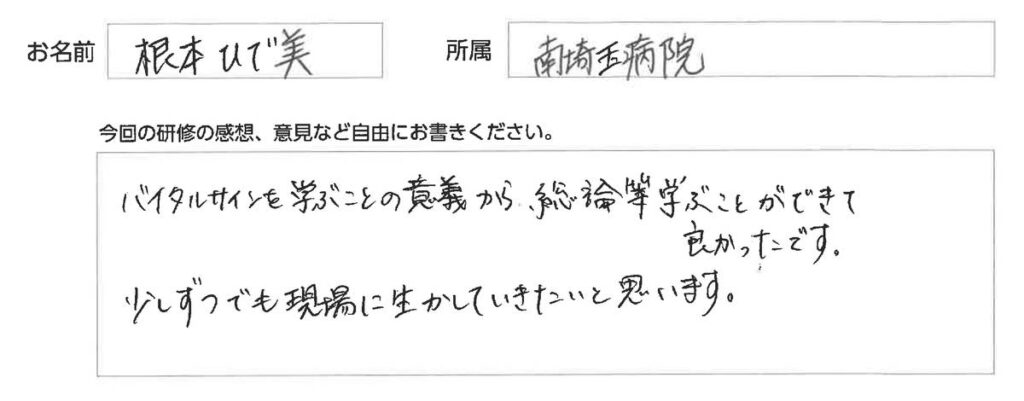 お名前 根本ひで美 所属 南埼玉病院
今回の研修の感想、意見など自由にお書きください。
バイタルサインを学ぶことの意義から、総論等学ぶことができて
良かったです。
少しずつでも現場に生かしていきたいと思います。